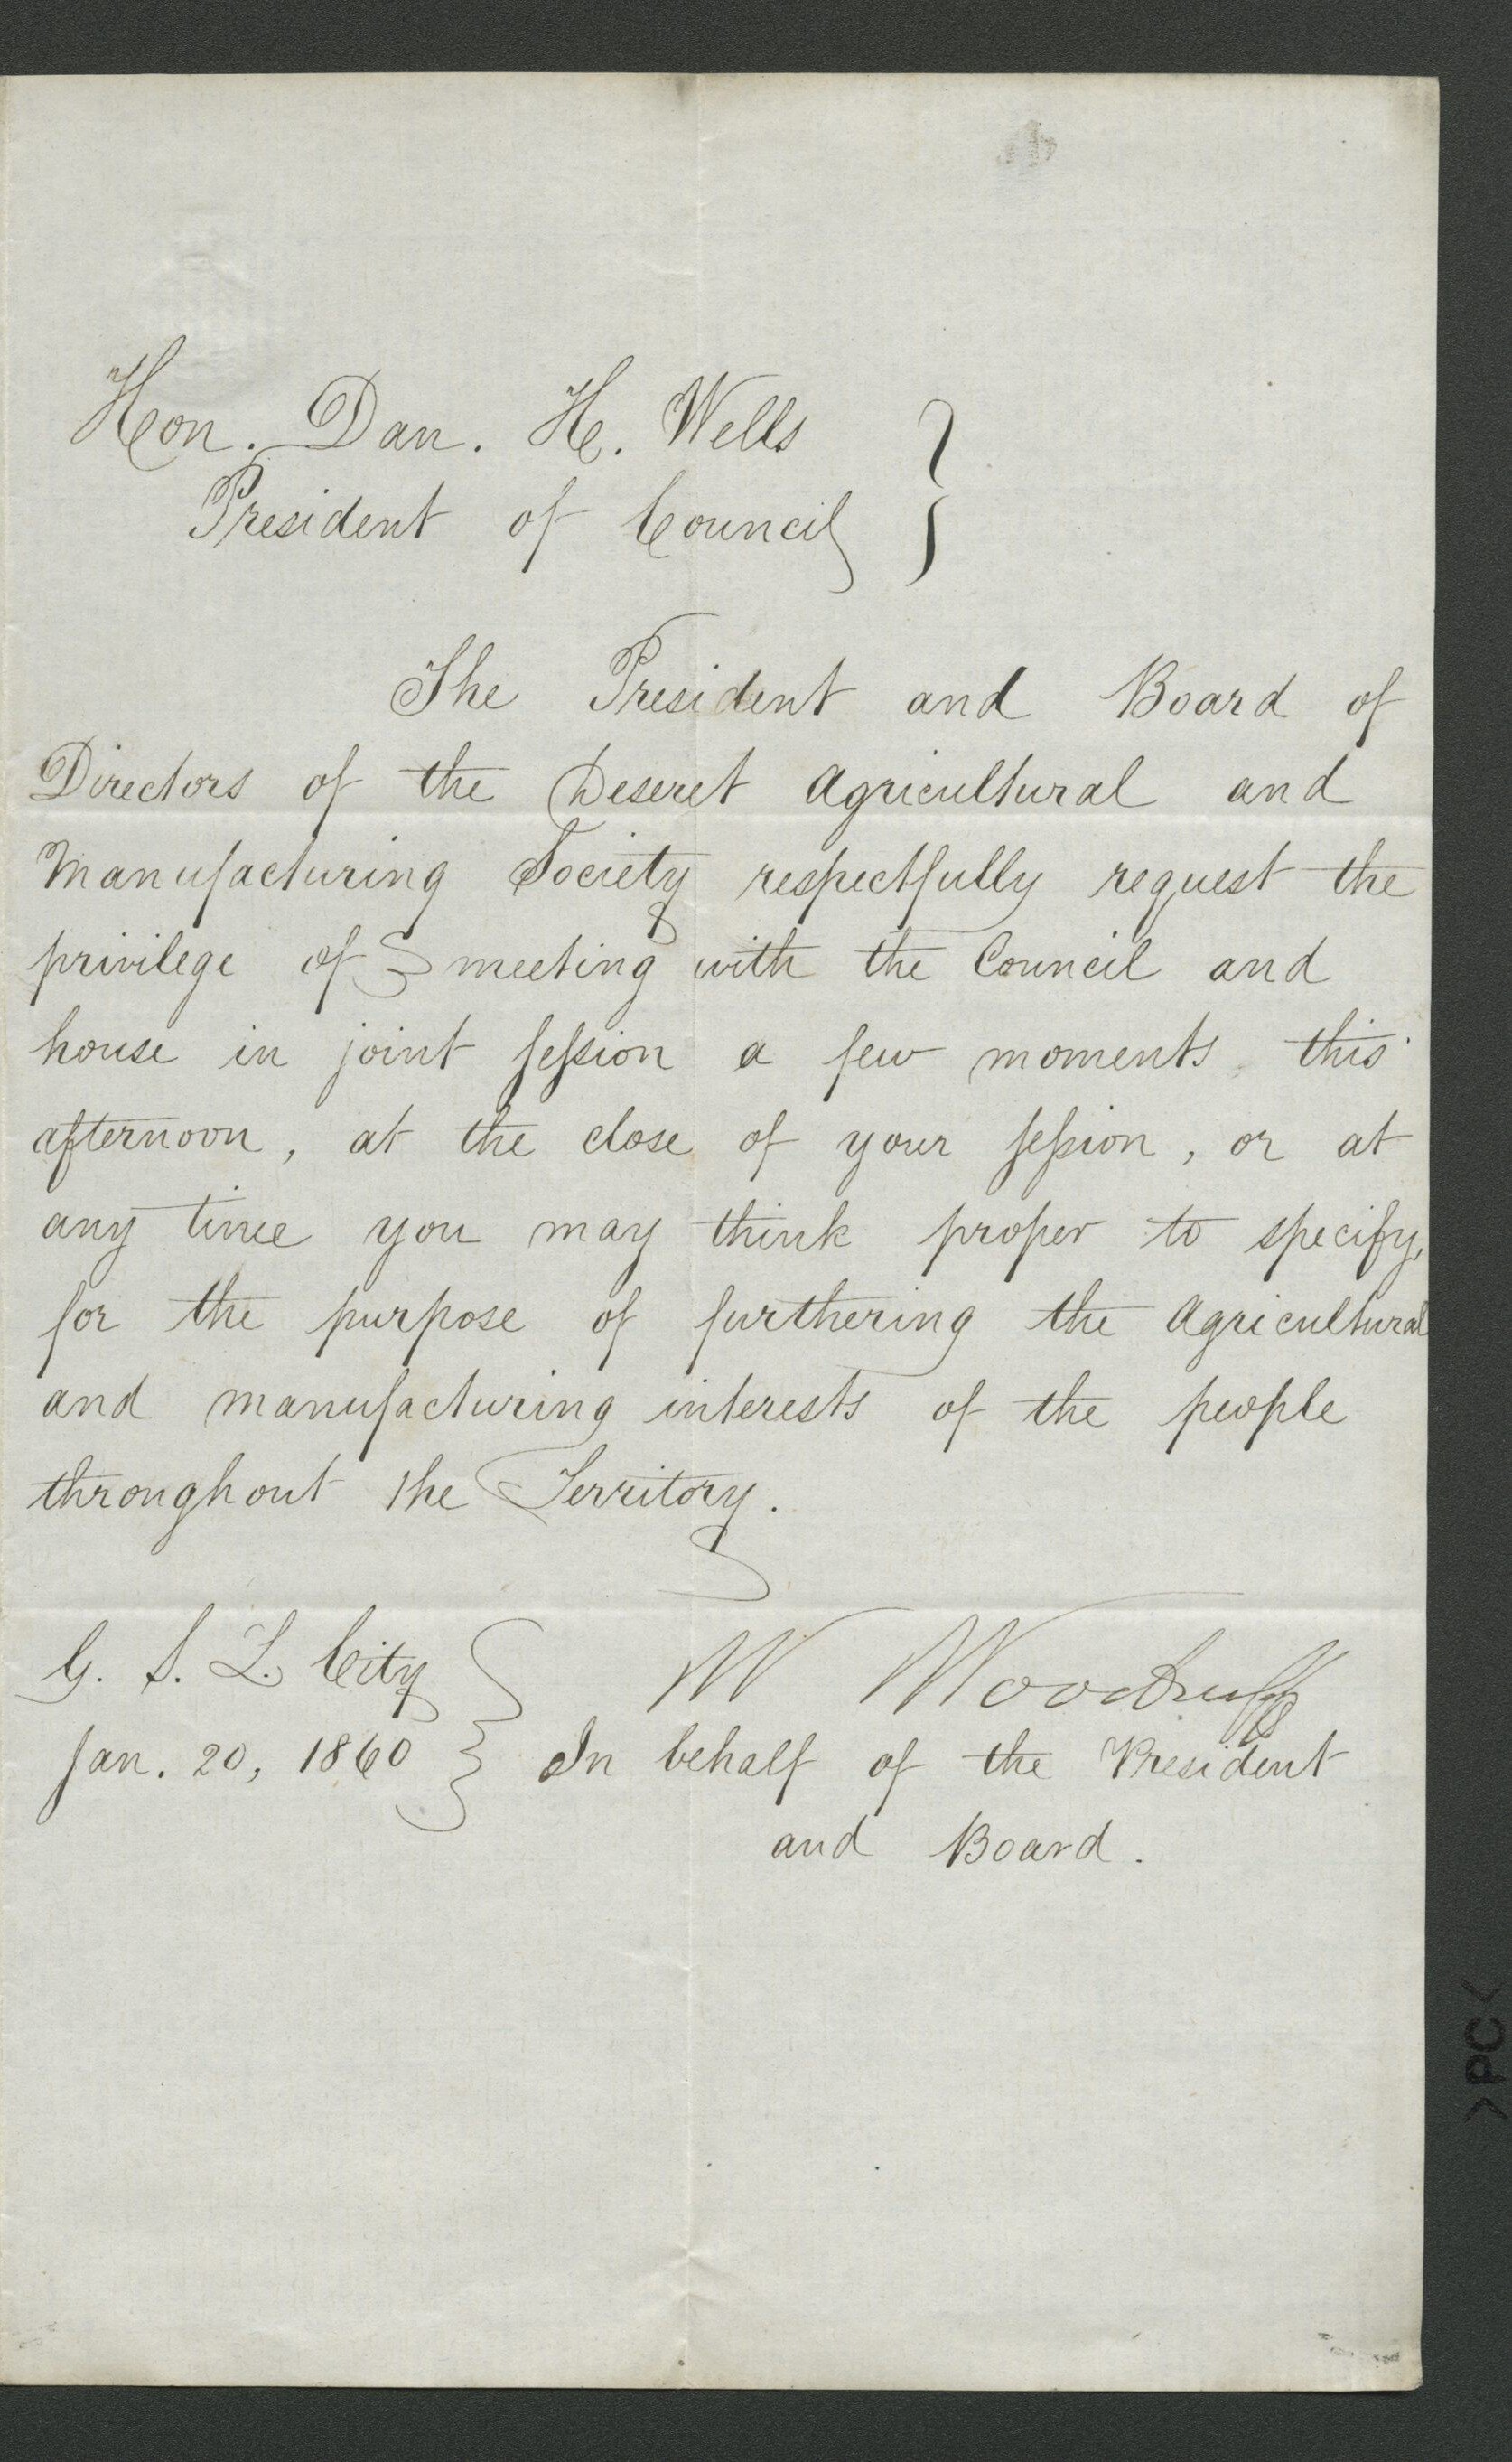 Hon. Dan. H. Wells
President of Council
The President and Board of
Directors of the Deseret Agricultural and
Manufacturing Society respectfully request the
privilege of meeting with the Council and
house in joint session a few moments this
afternoon, at the close of your session, or at
any time you may think proper to specify,
for the purpose of furthering the Agricultural
and manufacturing interests of the people
throughout the Territory.
G. S. L. City
Jan. 20, 1860
W Woodruff
In behalf of the President
and Board.
>PC<